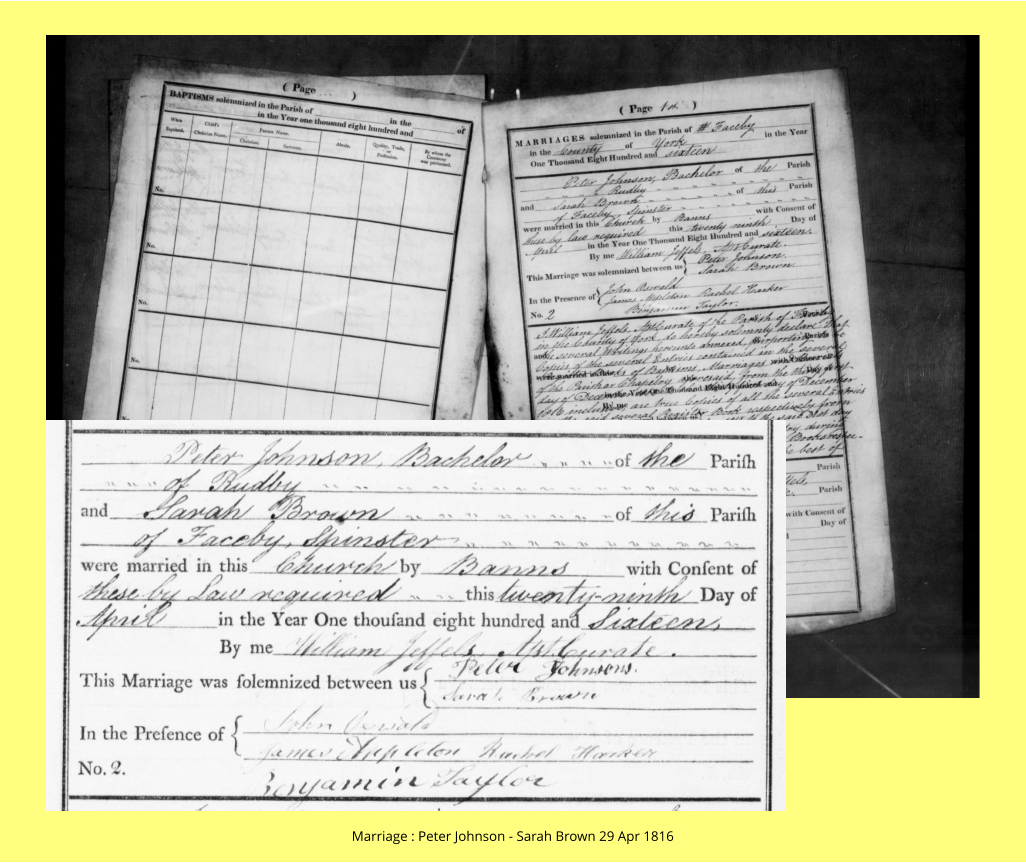 ( Page )
BAPTISMS solemnized in the Parish of in the of
in the Year one thousand eight hundred and
When Baptized.
Child's Christian Name.
Parents Name.
Christian.
Surname.
Abode.
Quality, Trade, or Profession.
By whom the Ceremony was performed.
No.
No.
No.
No.
( Page 1st )
MARRIAGES solemnized in the Parish of Faceby
in the County of York in the Year
One Thousand Eight Hundred and sixteen
Peter Johnson, Bachelor of the Parish
Rudby of this Parish
and Sarah Brown
of Faceby, Spinster
were married in this Church by Banns with Consent of
these by law required this twenty ninth Day of
April in the Year One Thousand Eight Hundred and sixteen.
By me William Jeffels, Curate.
This Marriage was solemnized between us { Peter Johnson.
Sarah Brown
In the Presence of { John Oswald
James Appleton Rachel Harker
No. 2 Benjamin Taylor.
I William Jeffels, Curate of the Parish of
in the County of York do hereby solemnly declare that
the several Writings hereunto annexed,
Copies of the several Entries contained in the several
of Baptisms, Marriages
of the Parish or Chapelry aforesaid, from the
day of December
are true Copies of all the several Entries
several Register Book respectively from
said 31st day
during
best of
Parish
Parish
with Consent of
Day of
Peter Johnson, Bachelor of the Pariſh
of Rudby
and Sarah Brown of this Pariſh
of Faceby, Spinster
were married in this Church by Banns with Conſent of
these by Law required this twenty-ninth Day of
April in the Year One thouſand eight hundred and Sixteen,
By me William Jeffels, Curate.
This Marriage was ſolemnized between us { Peter Johnsons.
Sarah Brown
In the Preſence of { John Oswald
James Appleton Rachel Harker
No. 2.
Benjamin Taylor
Marriage : Peter Johnson - Sarah Brown 29 Apr 1816